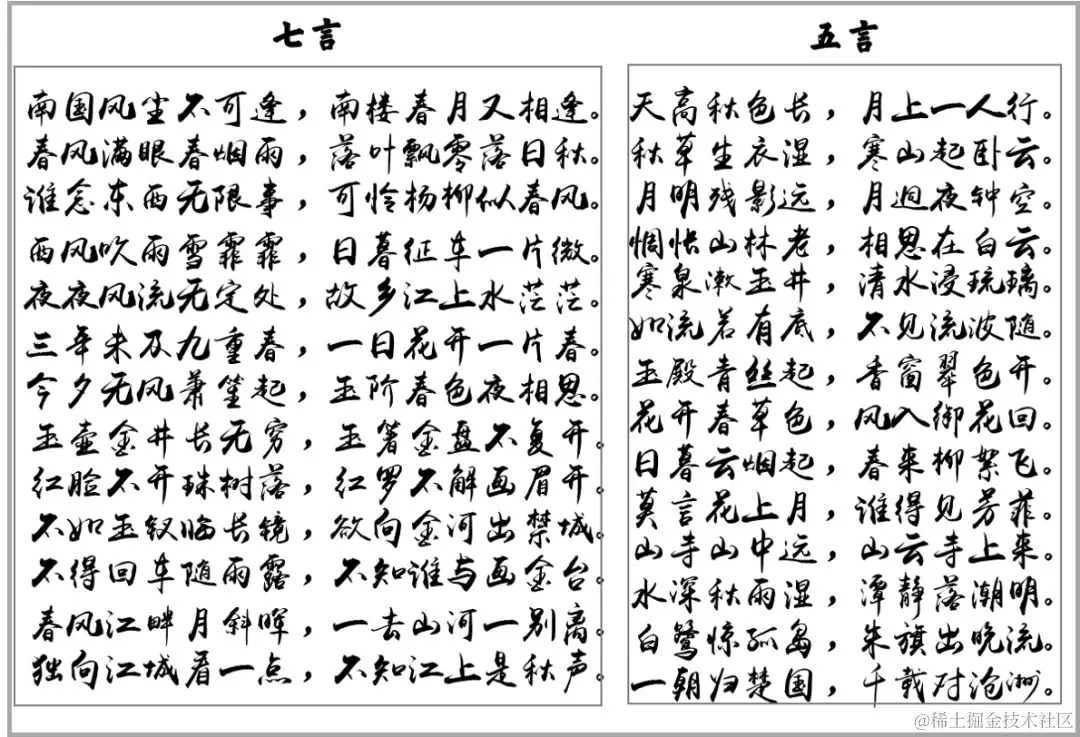 七言
南国风尘不可逢，南楼春月又相逢。
春风满眼春烟雨，落叶飘零落日秋。
谁念东西无限事，可怜杨柳似春风。
西风吹雨雪霏霏，日暮征车一片微。
夜夜风流无定处，故乡江上水茫茫。
三年未及九重春，一日花开一片春。
今夕无风萧笙起，玉阶春色夜相思。
玉壶金井长无穷，玉箸金盘不复开。
红脸不开珠树落，红罗不解画眉开。
不如玉钗临长镜，欲向金河出禁城。
不得回车随雨露，不知谁与画金台。
春风江畔月斜晖，一去山河一别离。
独向江城看一点，不知江上是秋声。
五言
天高秋色长，月上一人行。
秋草生衣湿，寒山起卧云。
月明残影远，月迥夜钟空。
惆怅山林老，相思在白云。
寒泉漱玉井，清水浸琉璃。
如流若有底，不见流波随。
玉殿青丝起，香窗翠色开。
花开春草色，风入御花回。
日暮云烟起，春来柳絮飞。
莫言花上月，谁得见芳菲。
山寺山中远，山云寺上来。
水深秋雨湿，潭静落潮明。
白鹭惊孤岛，朱旗出晚流。
一朝归楚国，千载对沧洲。
@稀土掘金技术社区